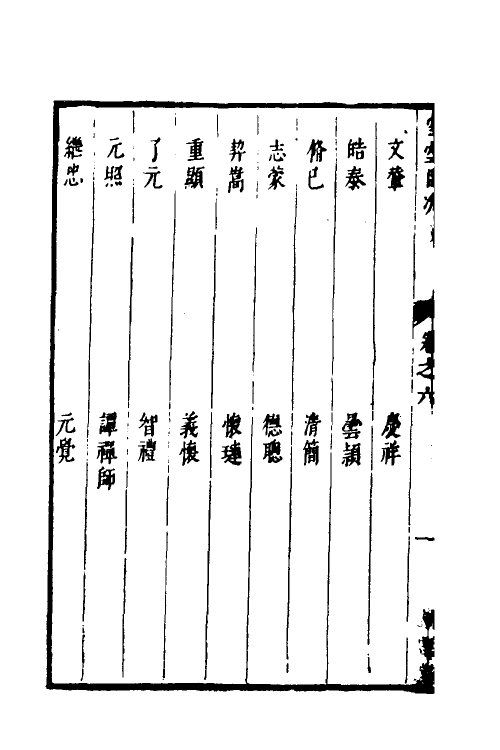 文鞶 慶祥
皓泰 曇頴
脩已 清簡
志蒙 德聰
契嵩 懷璉
重顯 義懷
了元 智禮
元照 譚禪師
繼忠 元覺
卷之六
一